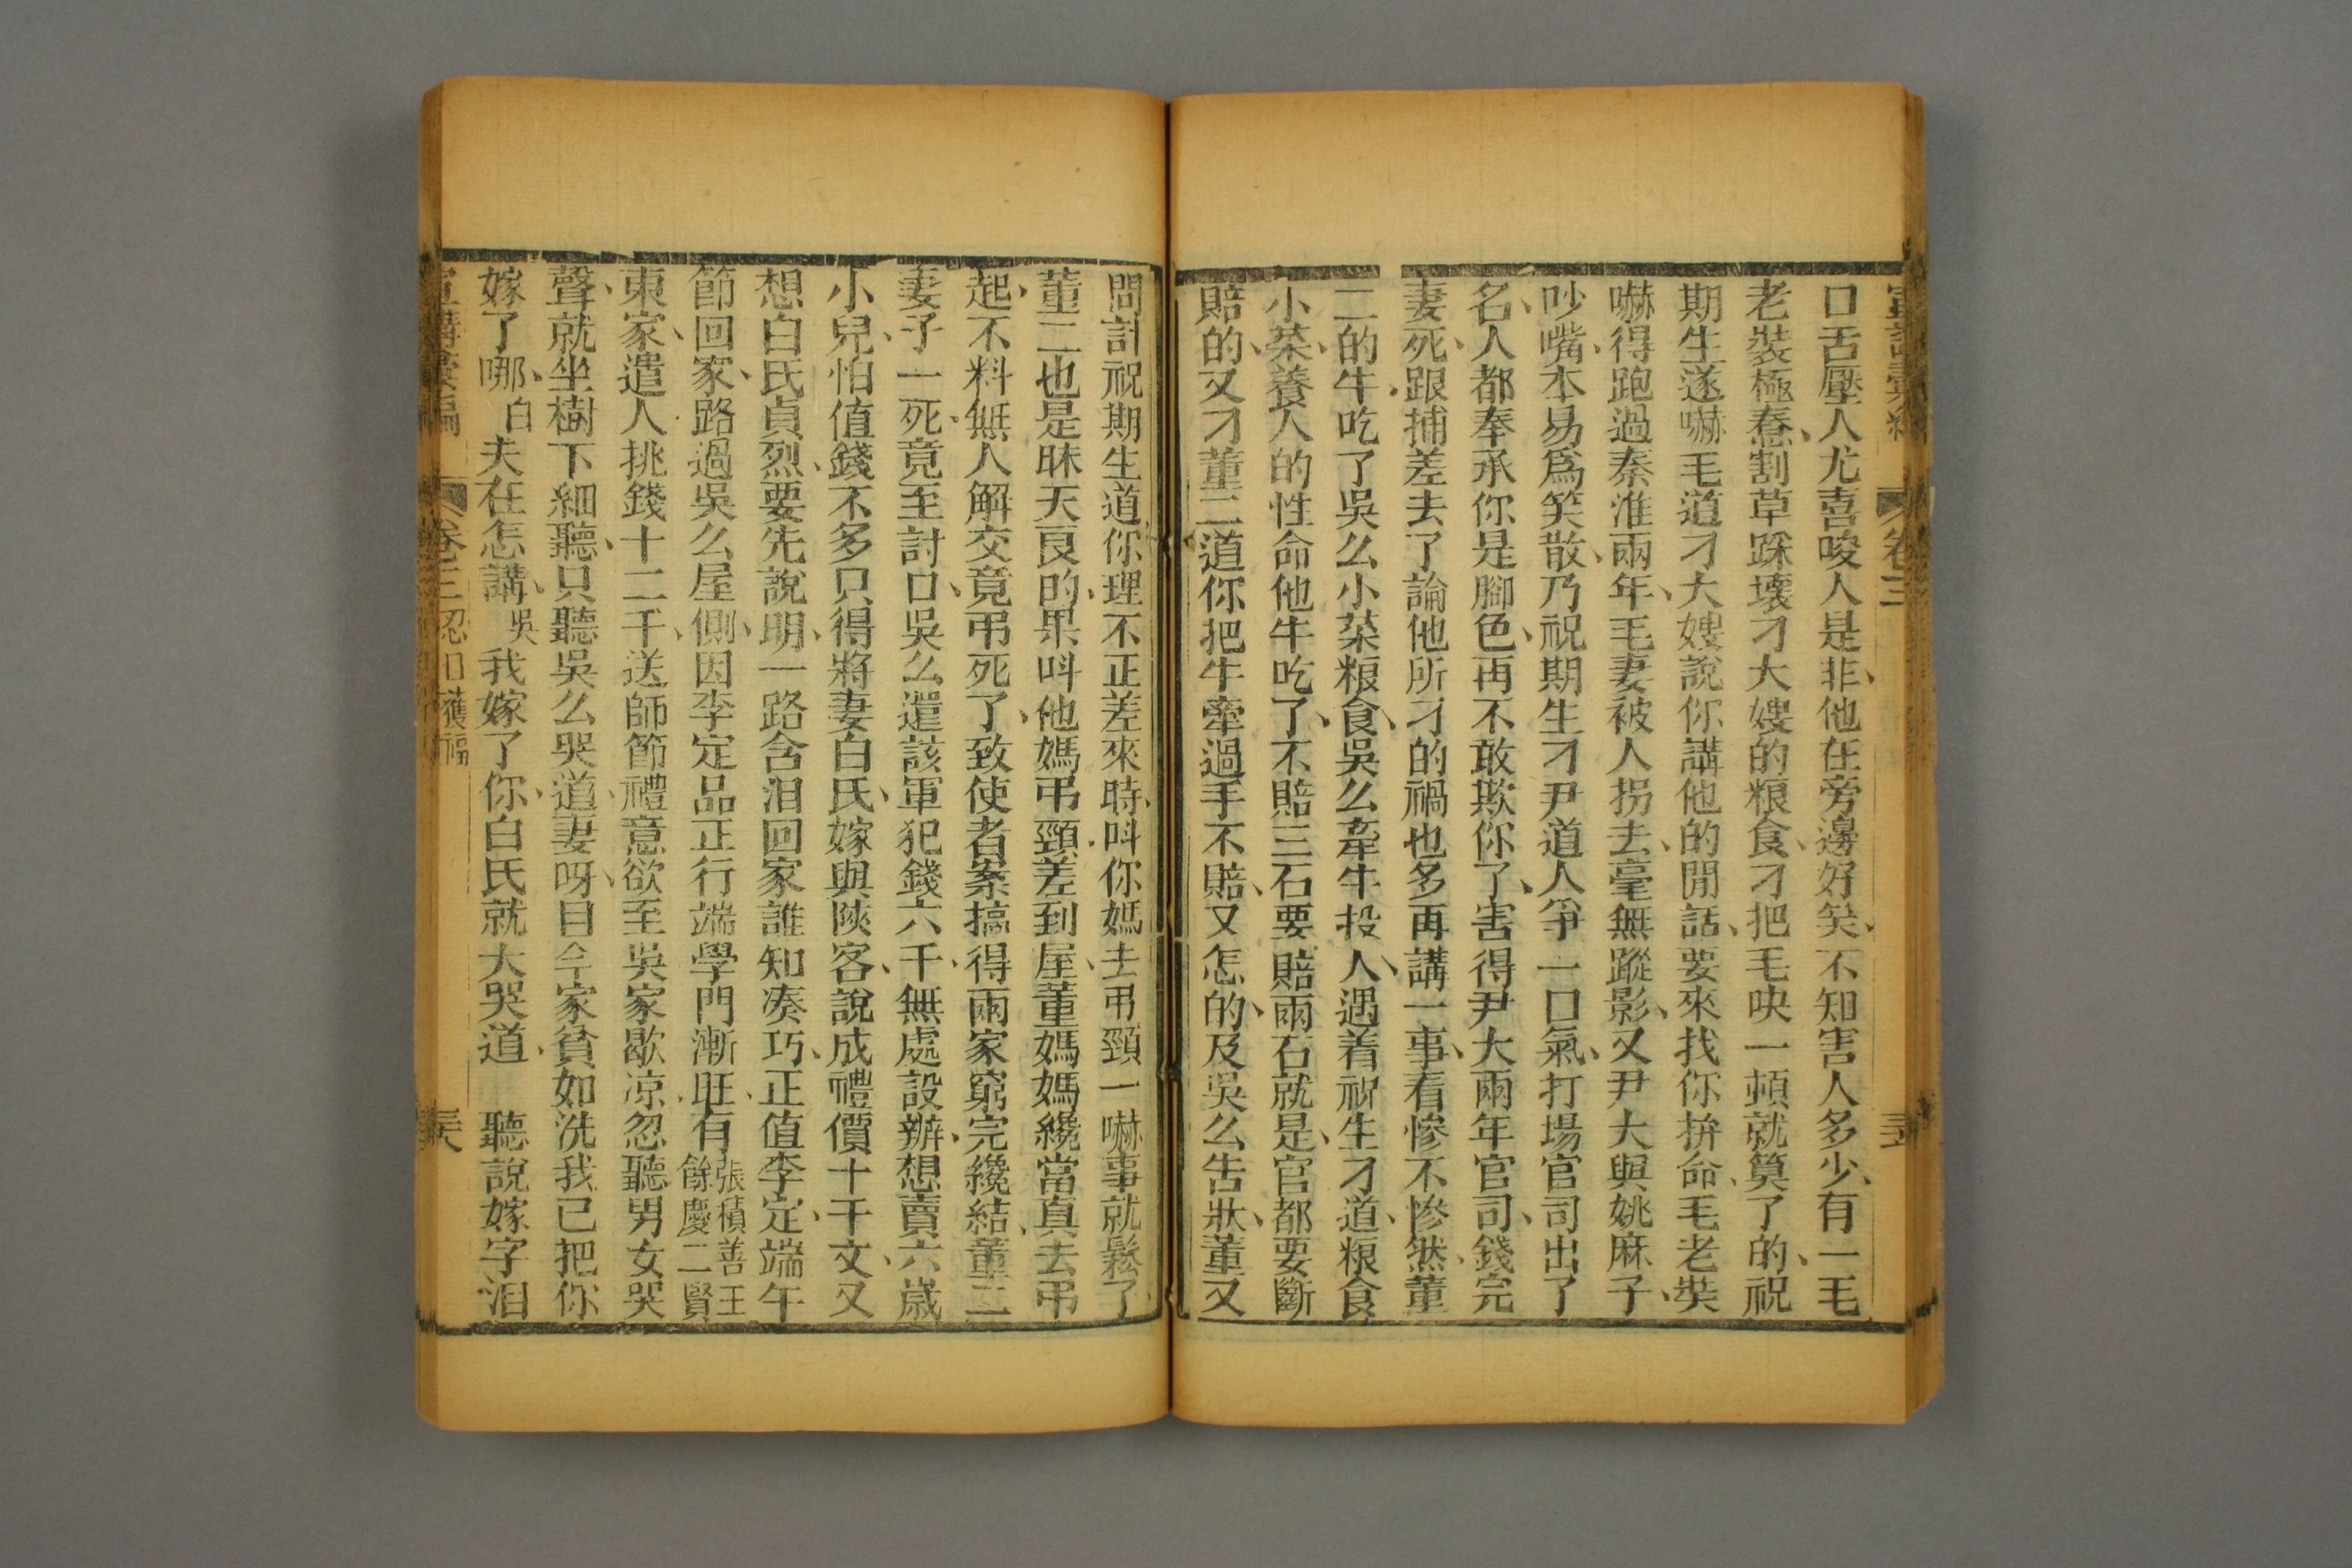 宣講彙編
卷三
口舌壓人尤喜唆人是非他在旁邊好笑不知害人多少有一毛
老裝極惷割草踩壞刁大嫂的粮食刁把毛吷一頓就算了的祝
期生遂嚇毛道刁大嫂說你講他的閒話要來找你拚命毛老奘
嚇得跑過秦淮兩年毛妻被人拐去毫無蹤影又尹大與姚麻子
吵嘴本易爲笑散乃祝期生刁尹道人爭一口氣打塲官司出了
名人都奉承你是腳色再不敢欺你了害得尹大兩年官司錢完
妻死跟捕差去了論他所刁的禍也多再講一事看慘不慘然董
二的牛吃了吳么小菜粮食吳么牽牛投人遇着祝生刁道粮食
小菜養人的性命他牛吃了不賠三石要賠兩石就是官都要斷
賠的又刁董二道你把牛牽過手不賠又怎的及吳么告狀董又
問計祝期生道你理不正差來時呌你媽去弔頸一嚇事就鬆了
董二也是昧天良的果呌他媽弔頸差到屋董媽媽纔當真去弔
起不料無人解交竟弔死了致使者案搞得兩家窮完纔結董二
妻子一死竟至討口吳么還該軍犯錢六千無處設辦想賣六歲
小兒怕值錢不多只得將妻白氏嫁與陝客說成禮價十千文又
想白氏貞烈要先說明一路含泪回家誰知凑巧正值李定端午
節回家路過吳么屋側因李定品正行端學門漸旺有張積善王餘慶二賢
東家遣人挑錢十二千送師節禮意欲至吳家歇凉忽聽男女哭
聲就坐樹下細聽只聽吳么哭道妻呀目今家貧如洗我已把你
嫁了哪白夫在怎講吳我嫁了你白氏就大哭道 聽說嫁字泪
宣講彙編 卷三 忍口獲福